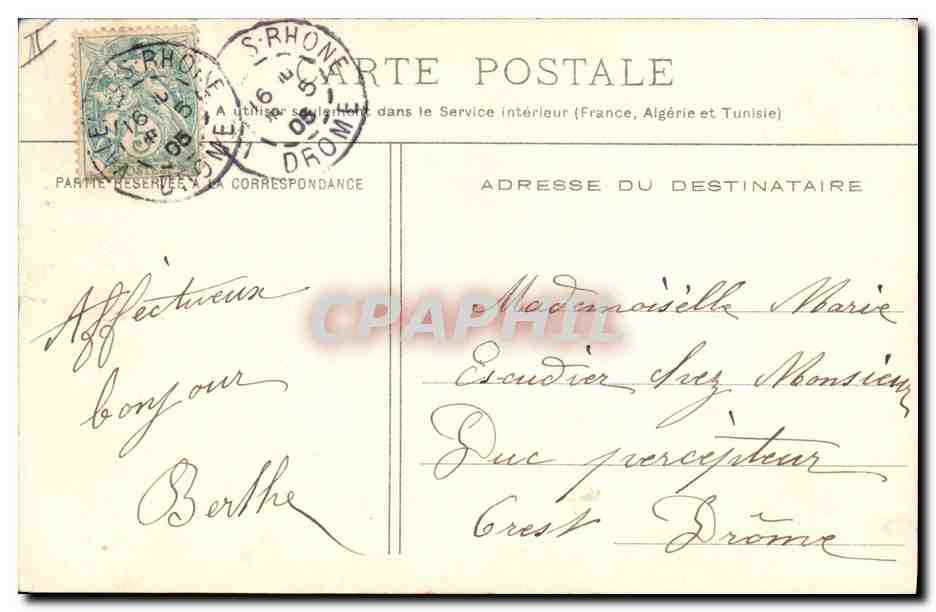 II
CARTE POSTALE
A utiliser seulement dans le Service intérieur (France, Algérie et Tunisie)
S-RHONE
16
2
05
DROME
S-RHONE
16
2
05
DROME
PARTIE RÉSERVÉE A LA CORRESPONDANCE
ADRESSE DU DESTINATAIRE
Afféctueux
bonjour
Berthe
Mademoiselle Marie
Escudier chez Monsieur
Duc percépteur
Crest Drôme
CPAPHIL